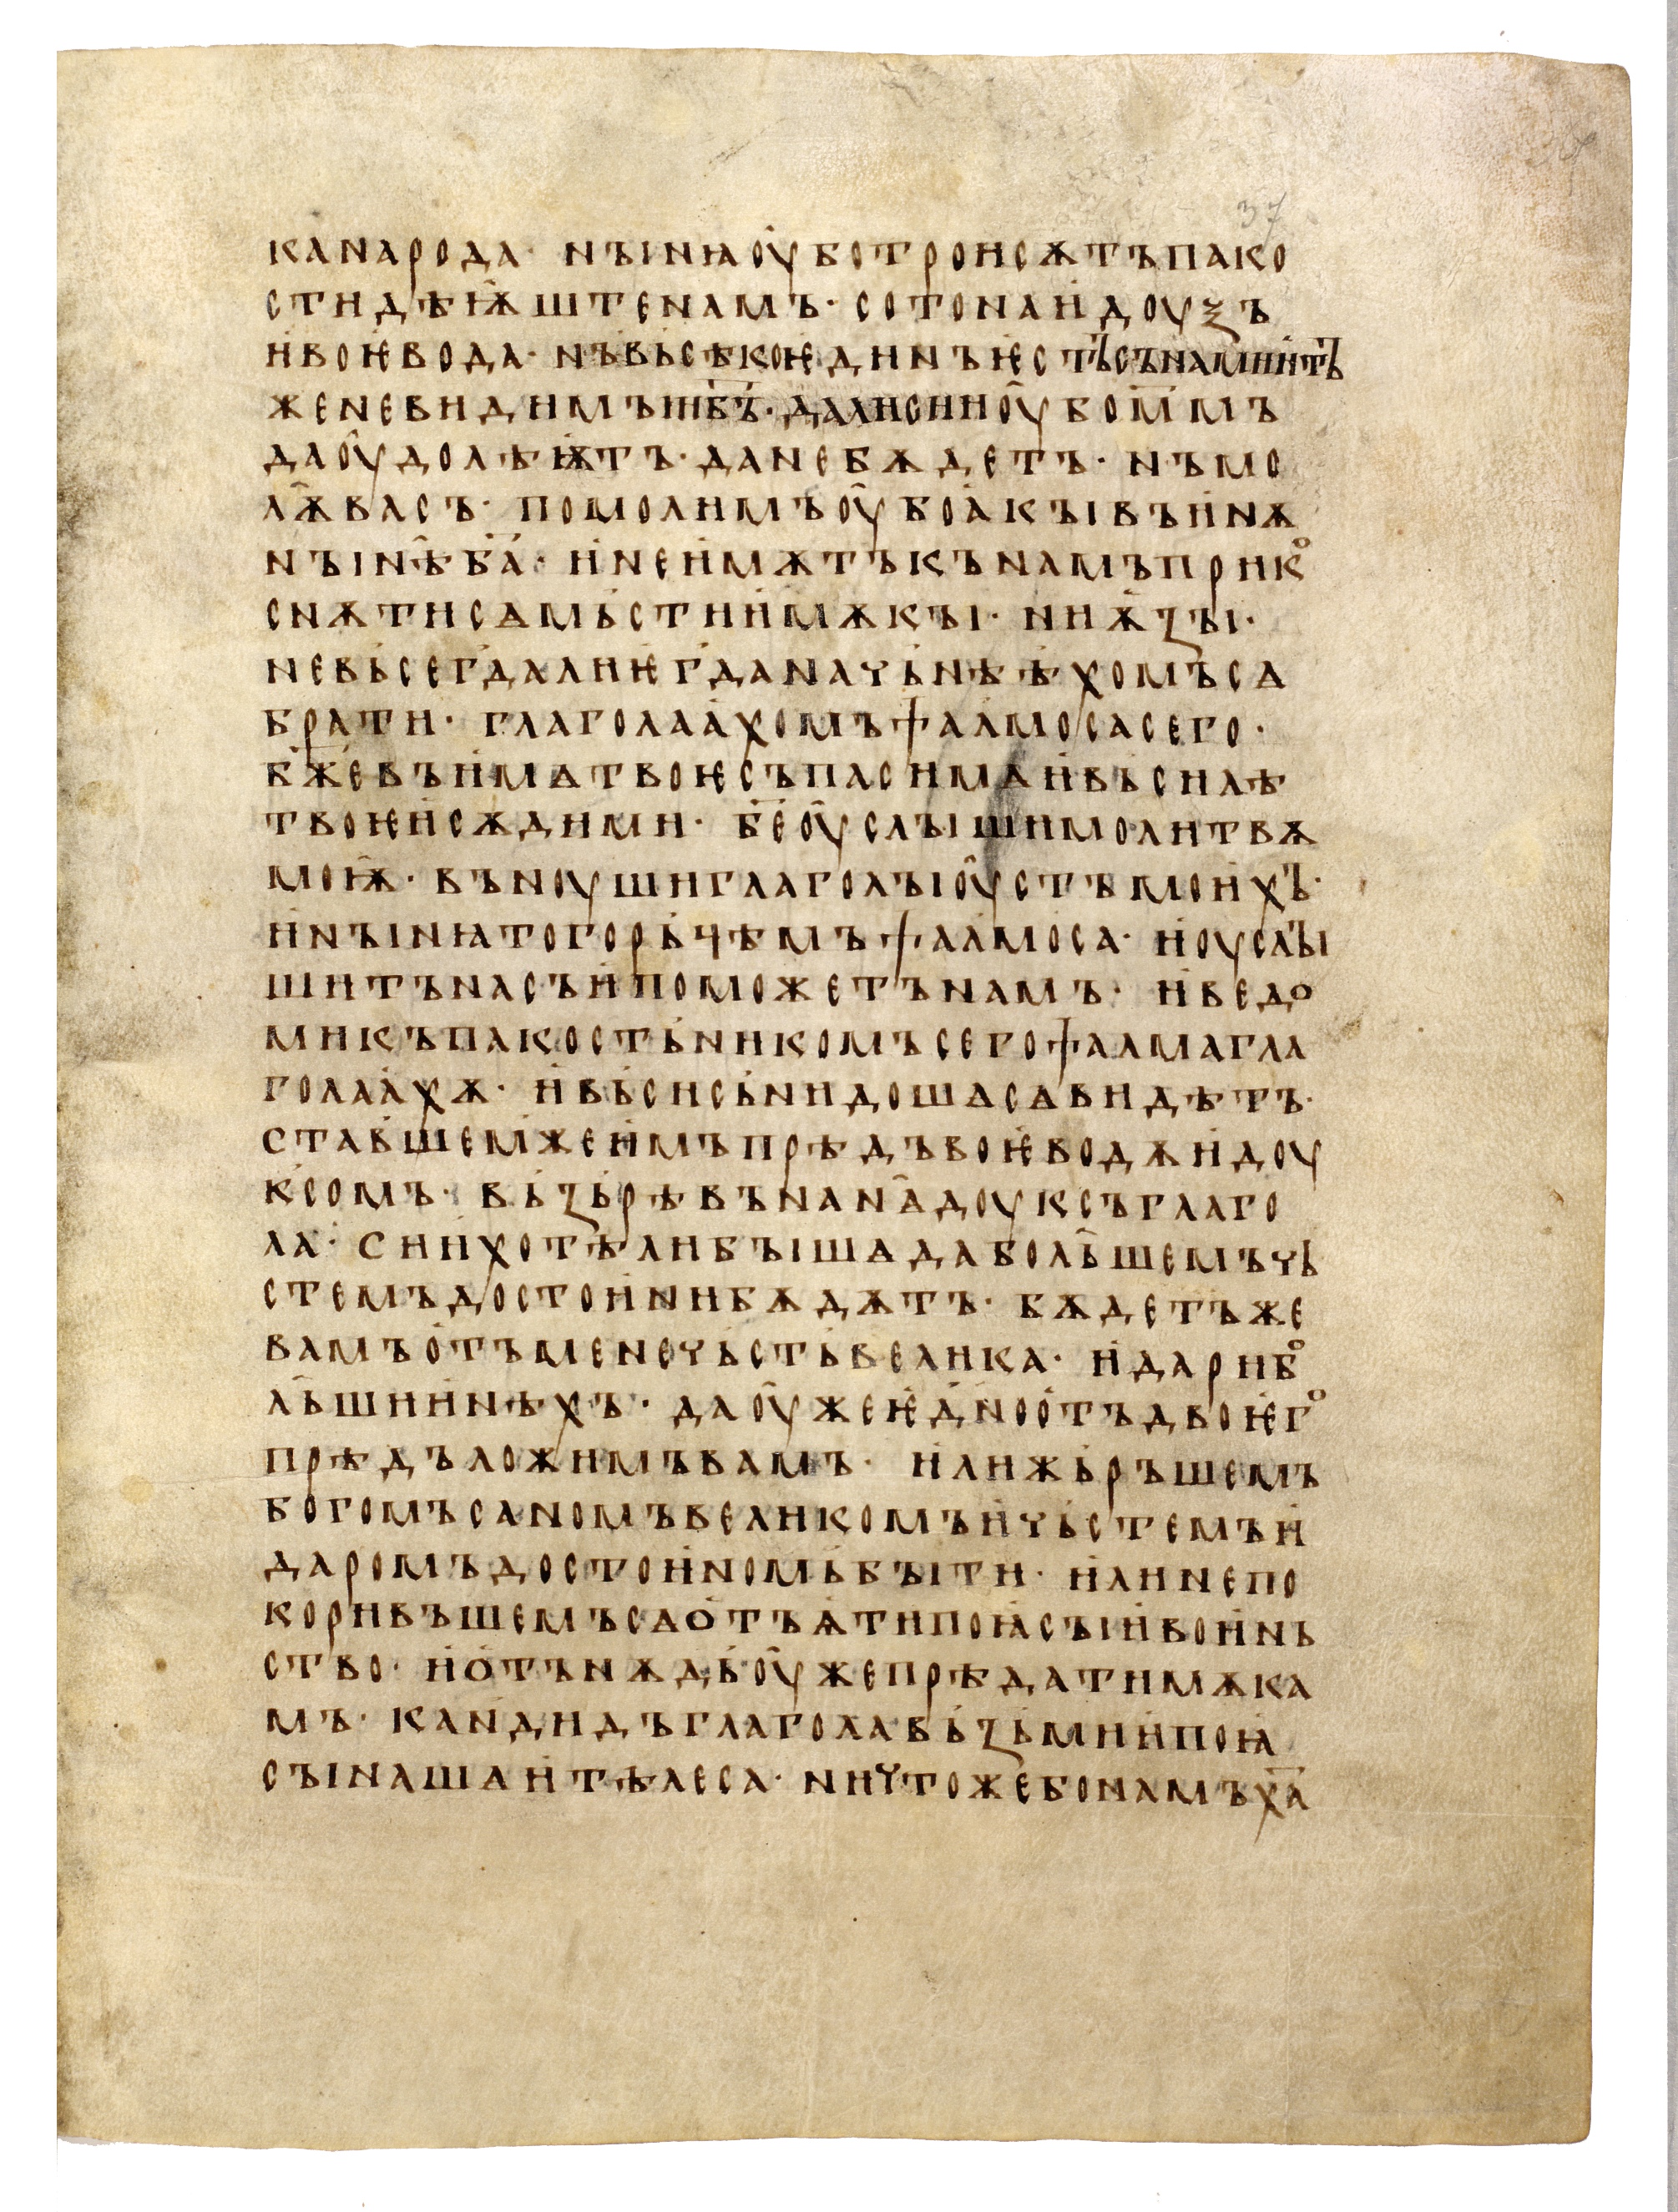 37
канарода· нꙑнꙗоу̑ботроисѫтъпако
стидѣѭ̑штенамъ· сотонаи҅доуѯъ
и҅воѥ҅вода· нъвь҅сѣкоѥ҅динъѥ҅стъ҅сънамии҅тъ
женевидимꙑи҅б҃ъ· далисииоу̑бом҃мъ
даоу̑долѣѭ҅тъ· данебѫдетъ· нъмо
лѭ̑васъ· помолимъоу̑боа҅кꙑвъи҅нѫ
нꙑнѣ̑б҃а· и҅неи҅мѫтъкънамъприко
снѫтисѧмь҅стии҅мѫкꙑ· ниѫ҅ꙁꙑ·
невь҅сег҅далиѥ҅г҅даначь҅нѣѣ҅хомъсѧ
брати· глаголаа҅хомъѱал҅мосасего·
б҃жевъи҅мѧтвоѥсъпасимѧи҅вь҅силѣ
твоѥи҅сѫдими· б҃еоу̑слꙑшимолитвѫ
моѭ̑· въноушиглаголꙑоу̑стъмоихъ·
и҅нꙑнꙗтогорь҅чѣмъѱал҅моса· и҅оуслꙑ
шитънасъи҅поможетънамъ· и҅ведо
микъпакость҅никомъсегоѱалмагла
голаа҅хѫ· и҅вь҅сисъ҅нидошѧсѧвидѣтъ·
став҅шем҅жеи҅мъпрѣдъвоѥ҅водѫи҅доу
к҅сомъ· вь҅ꙁь҅рѣвънанѧ̑доуксъглаго
ла· сии҅хотѣлибꙑшѧдабол҄ьшемъчь
стемъдостои҅нибѫдѫтъ· бѫдетъже
вамъо҅тъменечь҅сть҅велика· и҅дарибо
л҄ьшии҅нѣхъ· даоу̑жеѥ҅д҅ноо҅тъдвоѥ҅го
прѣдъложимъвамъ· и҅лижь҅ръшемъ
богомъсаномъвеликомъи҅чь҅стемъи҅
даромъдостои҅номь҅бꙑти· и҅линепо
коривъшемъсѧо҅тъѧ҅типоꙗ҅сꙑи҅вои҅нь
ство· и҅о҅тънѫдь҅оу̑жепрѣдатимѫка
мъ· кан҅дидъглаголавь҅ꙁь҅мии҅поꙗ
сꙑнашѧи҅тѣлеса· ничтожебонамъх҃а